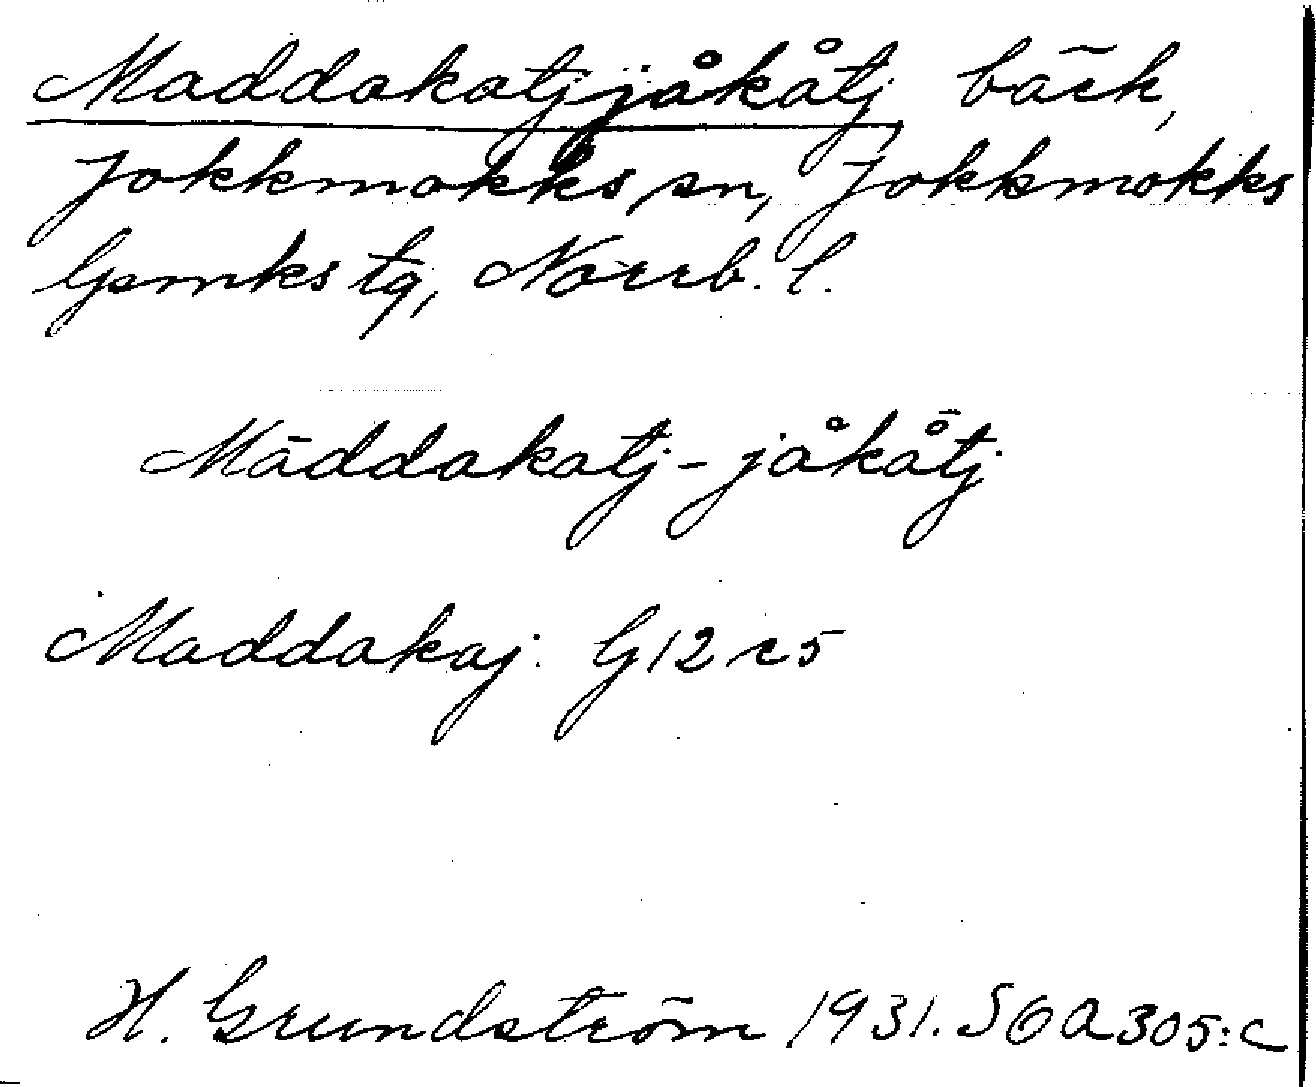 Maddakatjjåkåtj bäck,
Jokkmokks sn, Jokkmokks
lpmks tg, Norrb. l.
Māddakatj-jåkå̄tj
Maddakaj: G12 c5
H. Grundström 1931. SOA 305:c